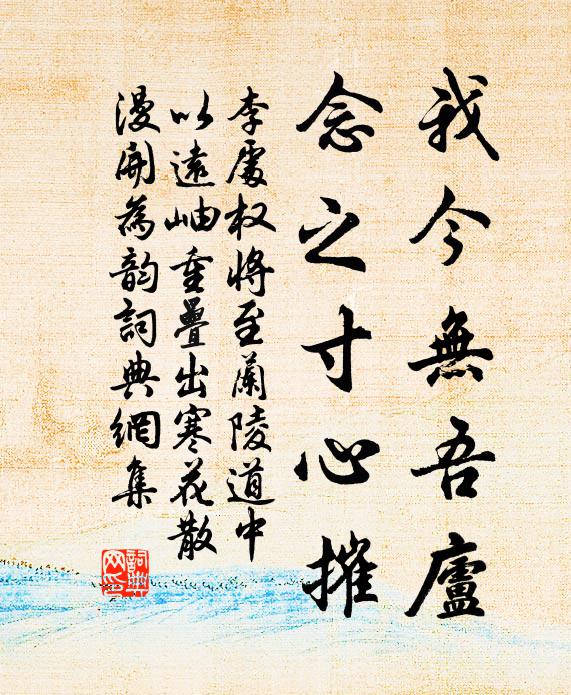 我今無吾廬
念之寸心摧
李處权將至蘭陵道中
以遠岫重疊出寒花散
漫開為韵詞典網集
詞典網印